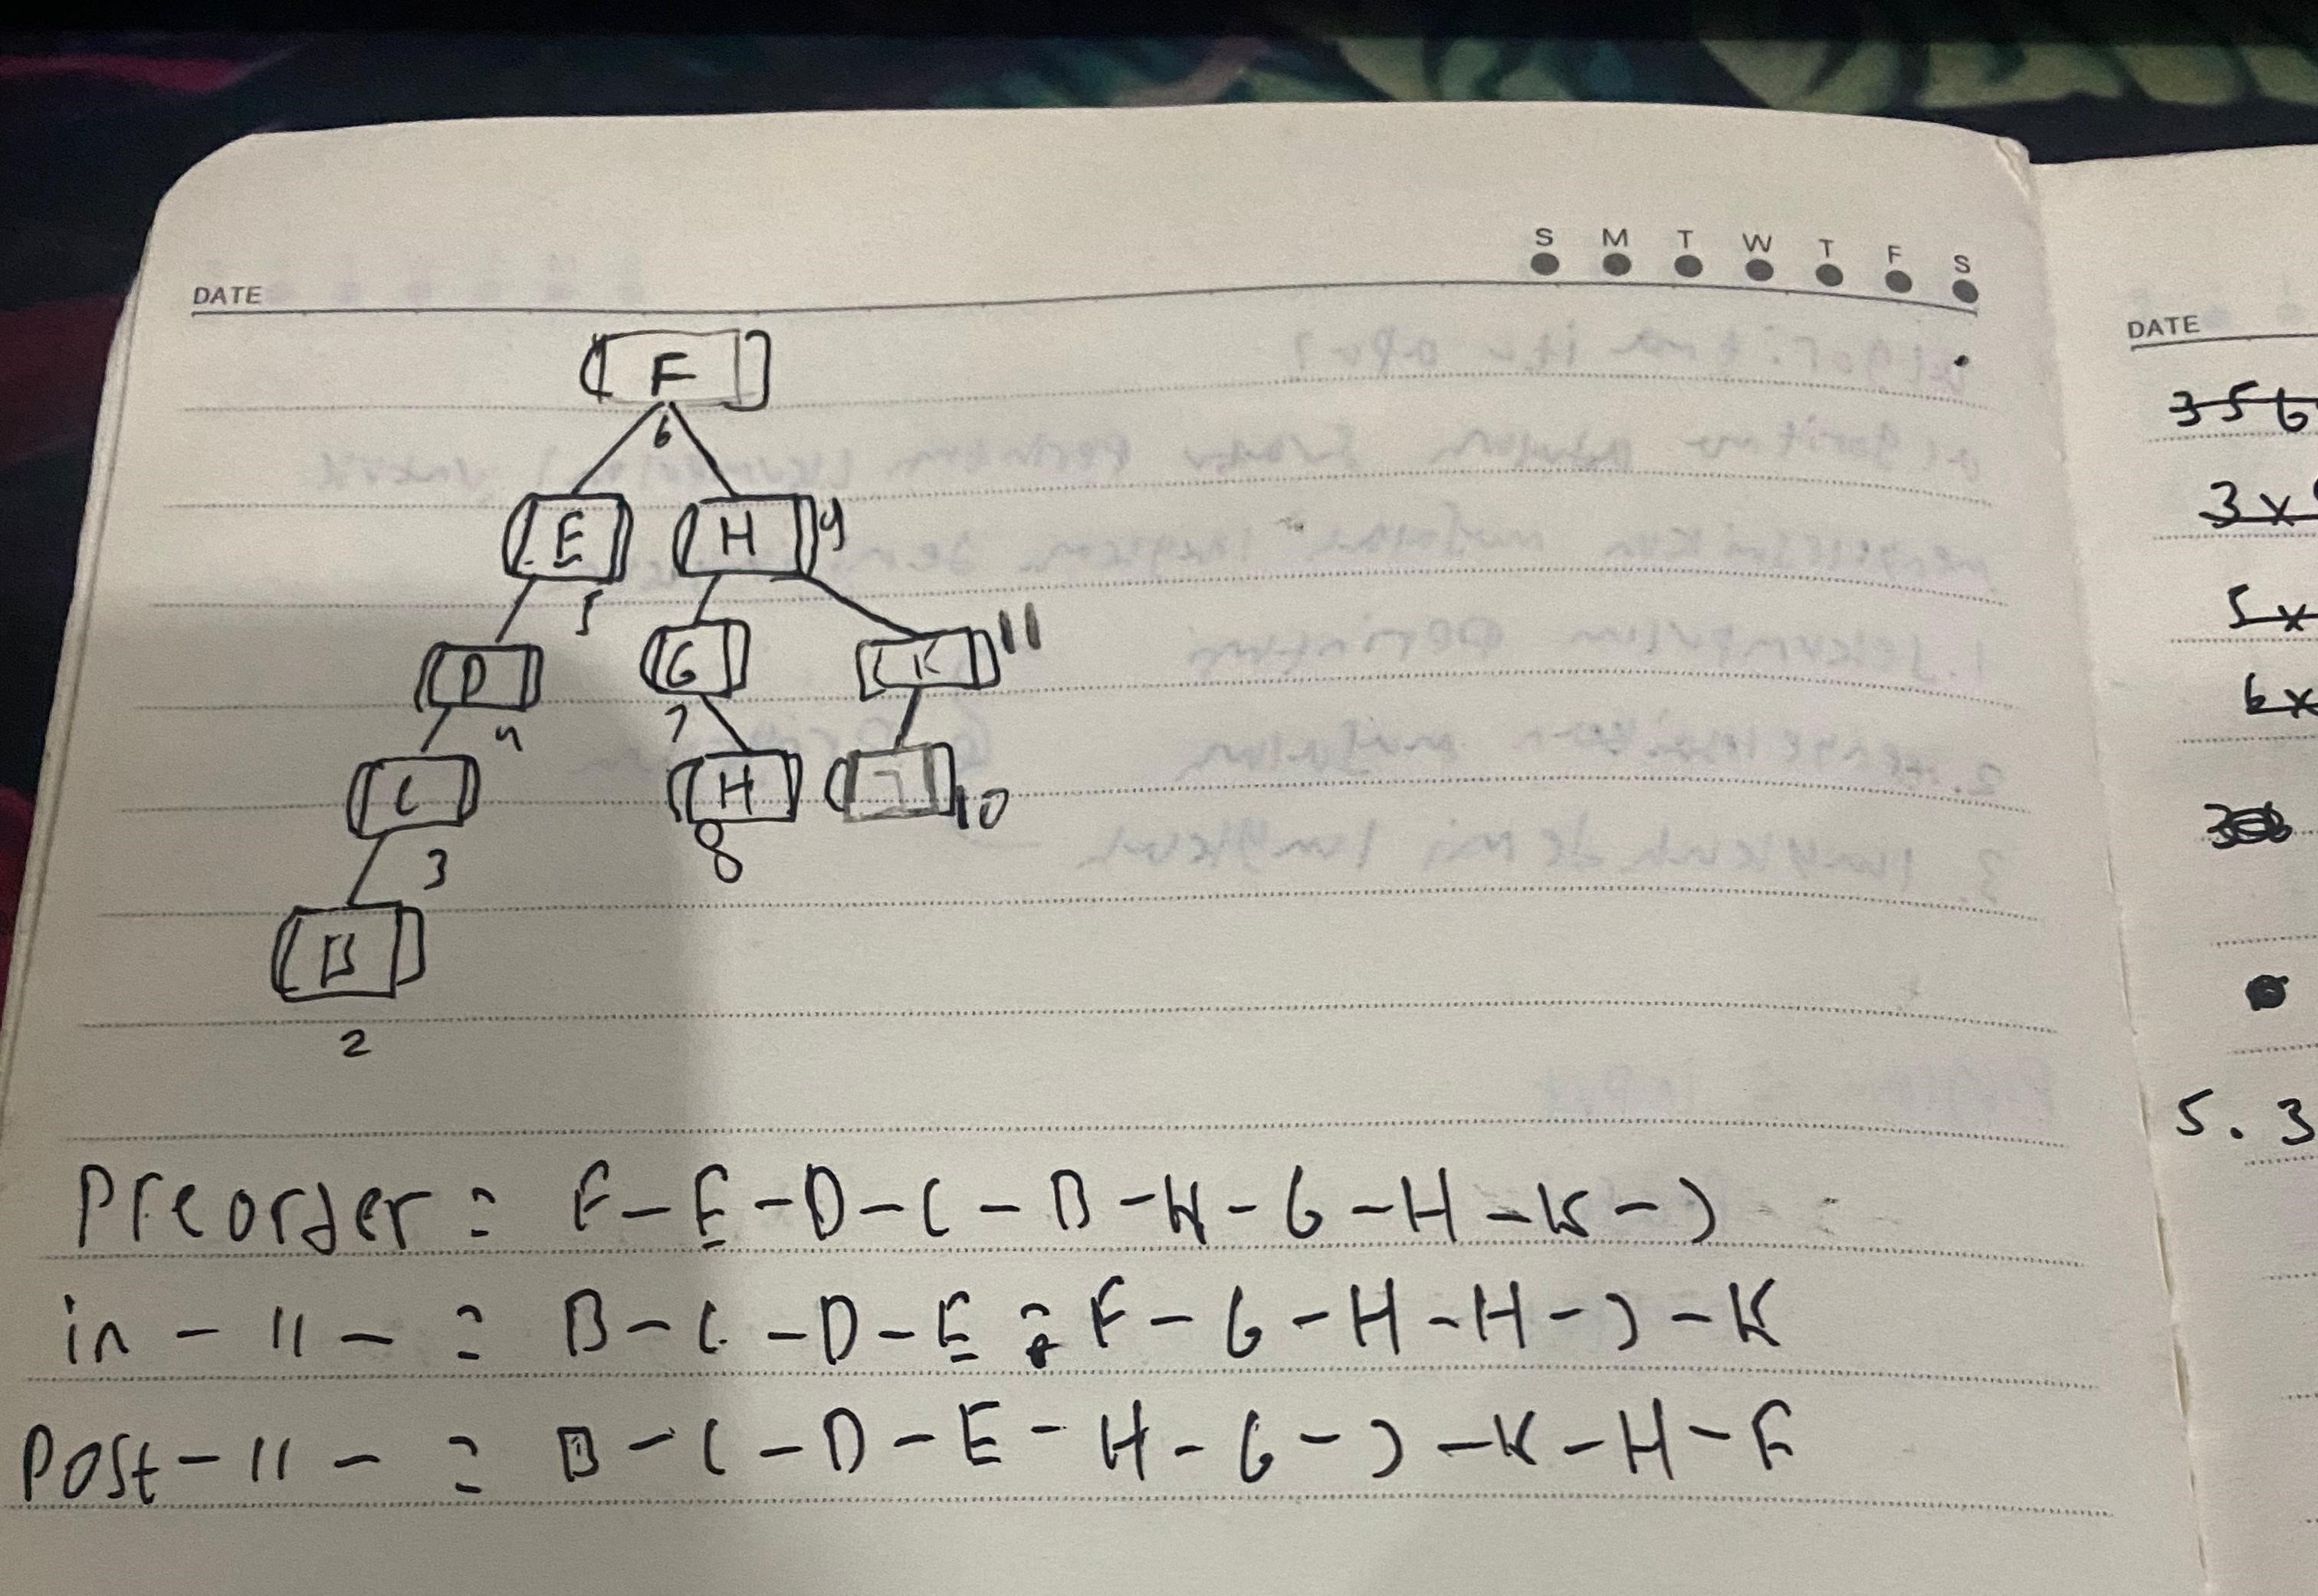 S M T W T F S
DATE
F
6
E H 9
5
D G K 11
4 7
C H J 10
3 8
B
2
Preorder = F - E - D - C - B - H - G - H - K - J
in - 11 - = B - C - D - E = F - G - H - H - J - K
Post - 11 - = B - C - D - E - H - G - J - K - H - F
DATE
3 5 6
3 x
5 x
6 x
5. 3